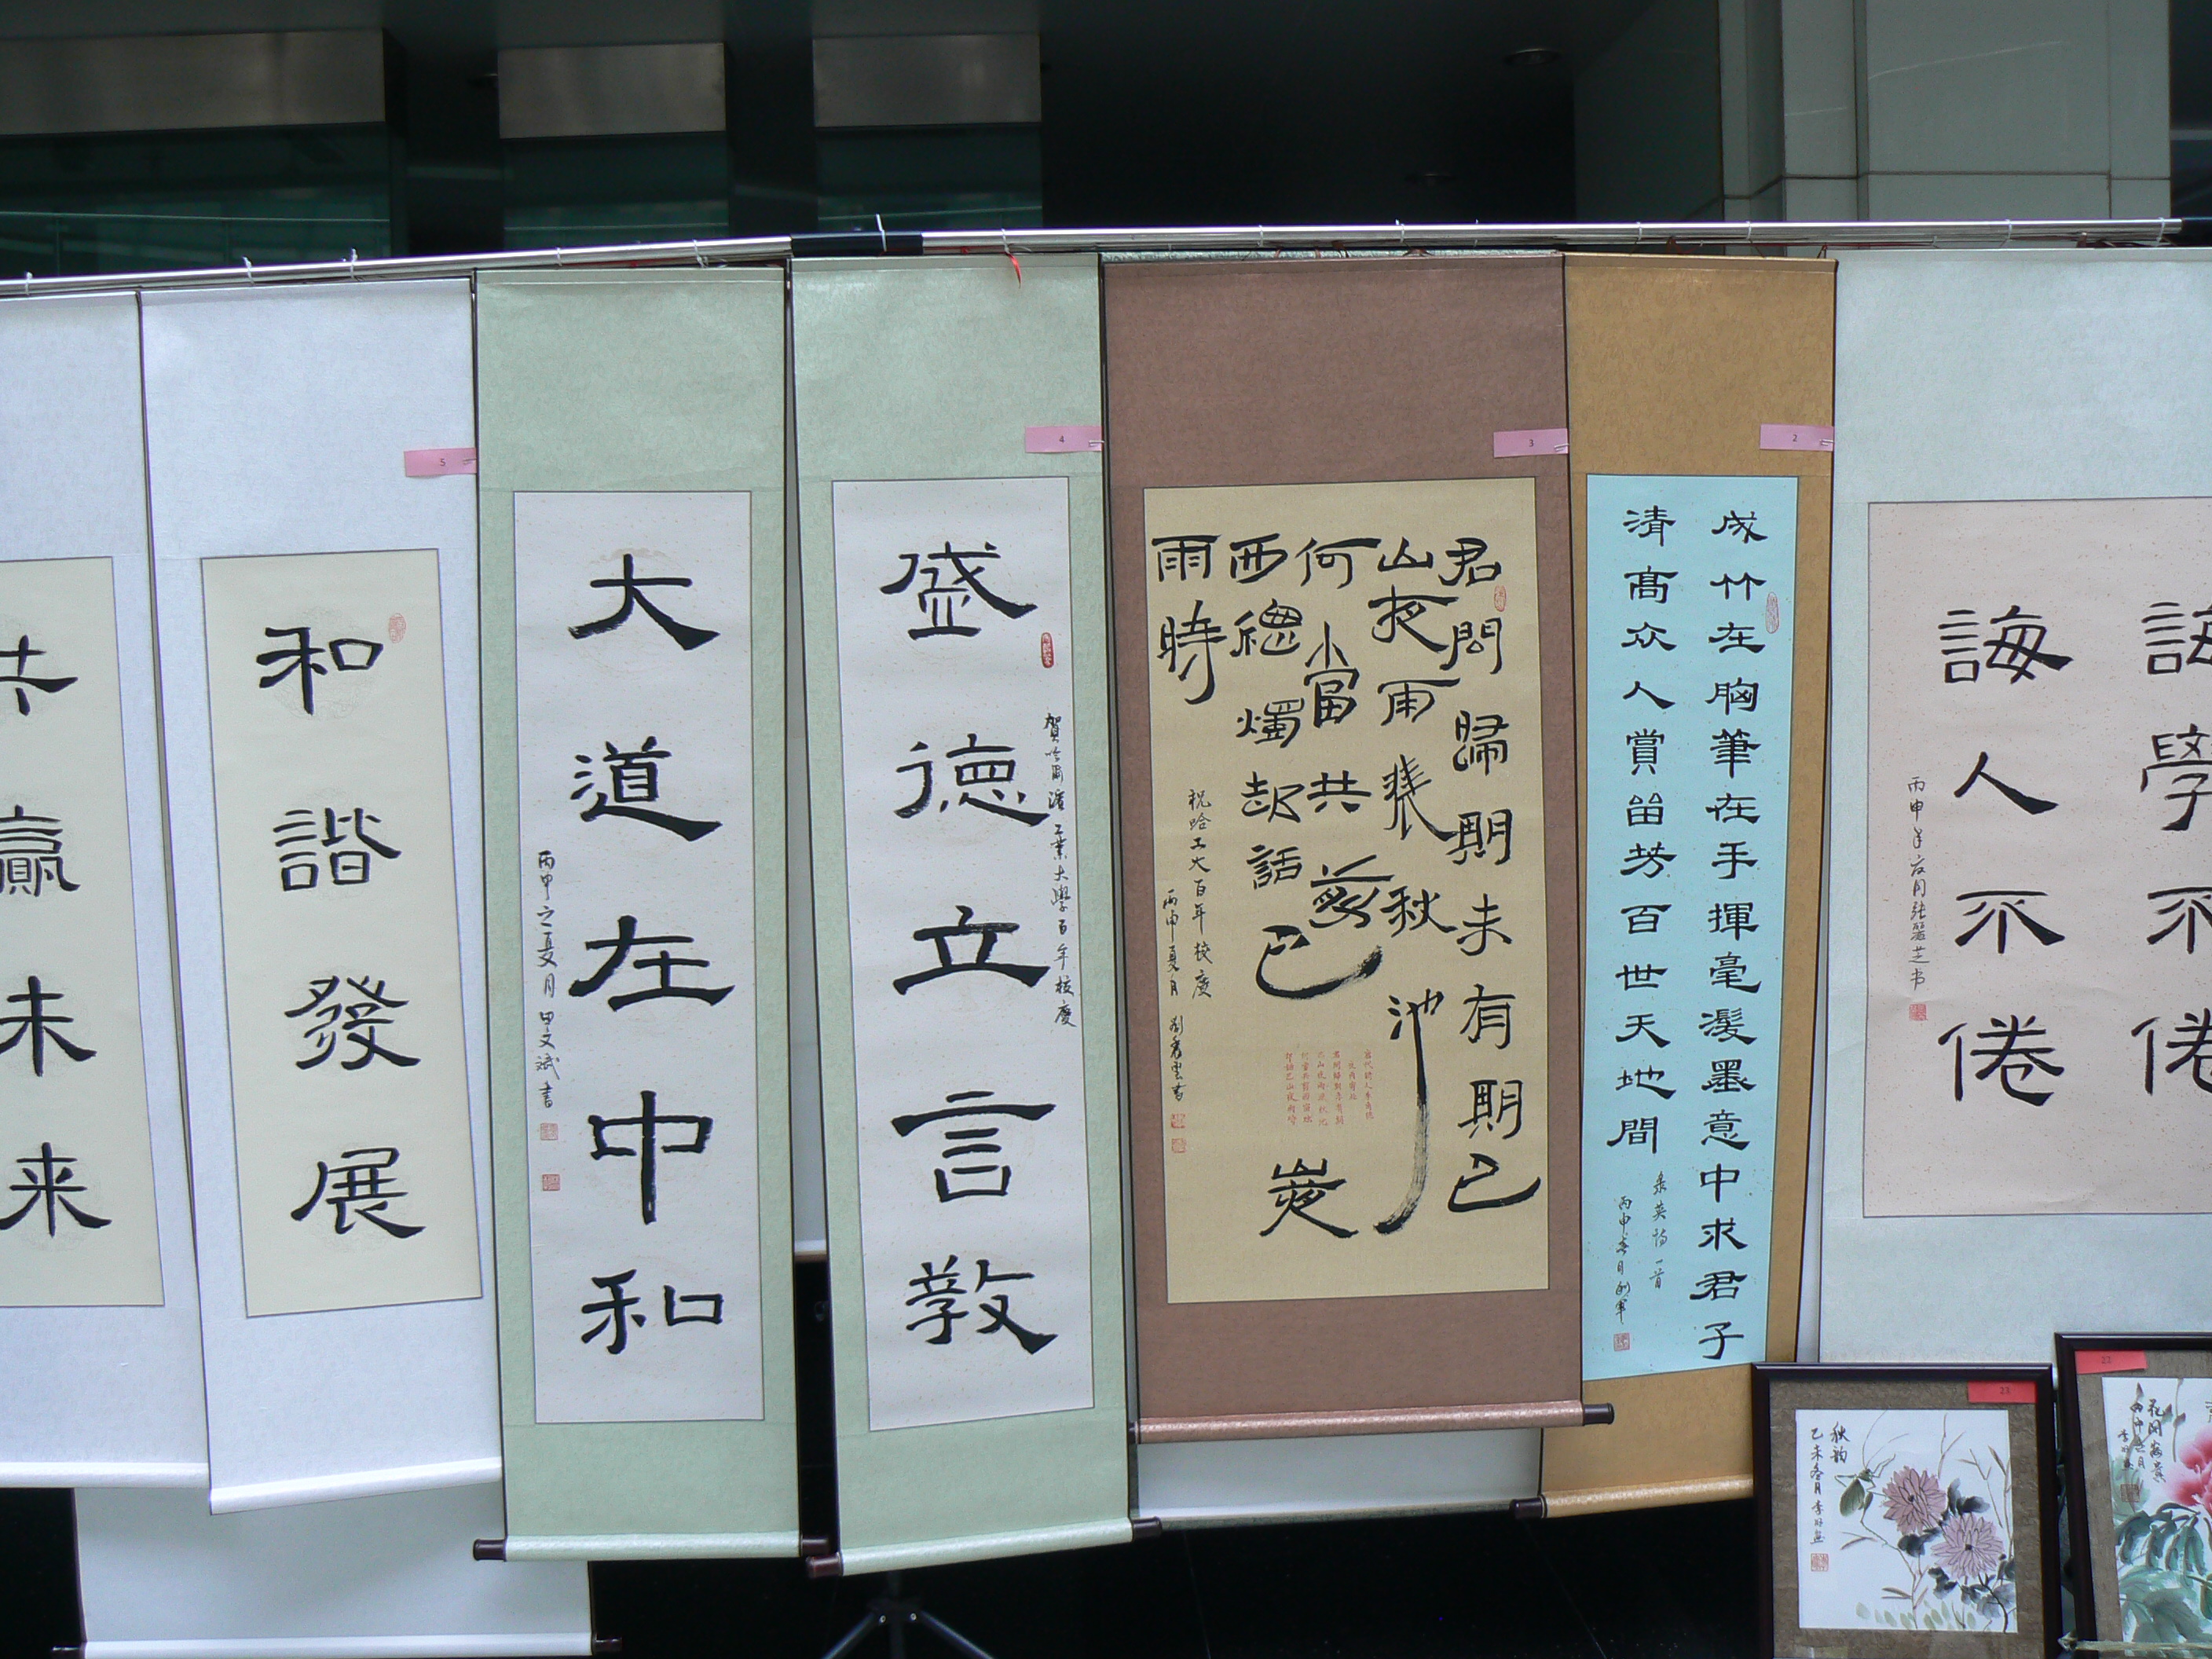 誨人不倦
丙申年
2
成竹在胸筆在手揮毫潑墨意中求君子
清高众人賞留芳百世天地間
3
君問歸期未有期巴
山夜雨漲秋池
何當共剪
西窗燭却話巴山夜
雨時
祝哈工大百年校慶
丙申夏月
4
賀哈爾濱工業大學百年校慶
盛德立言教
大道在中和
丙申之夏月田文斌書
5
和諧發展
共贏未来
22
23
秋韵
乙未冬月